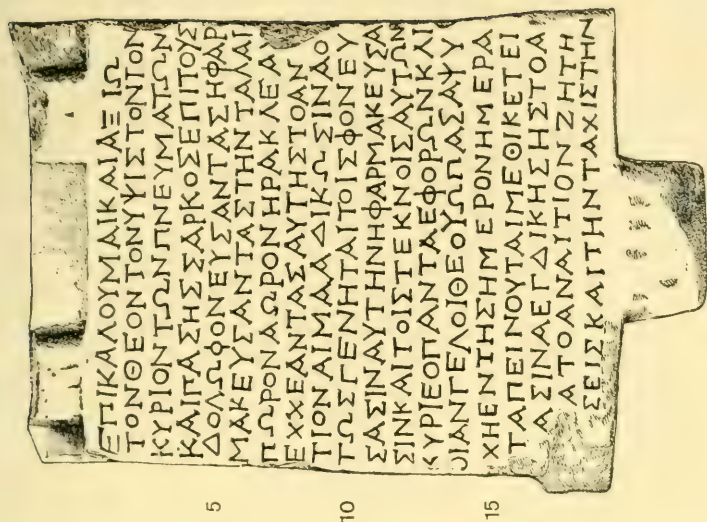 ΕΠΙΚΑΛΟΥΜΑΙΚΑΙΑΞΙΩ
ΤΟΝΘΕΟΝΤΟΝΥΨΙΣΤΟΝΤΟΝ
ΚΥΡΙΟΝΤΩΝΠΝΕΥΜΑΤΩΝ
ΚΑΙΠΑΣΗΣΣΑΡΚΟΣΕΠΙΤΟΥΣ
5 ΔΟΛΩΦΟΝΕΥΣΑΝΤΑΣΗΦΑΡ
ΜΑΚΕΥΣΑΝΤΑΣΤΗΝΤΑΛΑΙ
ΠΩΡΟΝΑΩΡΟΝΗΡΑΚΛΕΑΝ
ΕΧΧΕΑΝΤΑΣΑΥΤΗΣΤΟΑΝ
ΤΙΟΝΑΙΜΑΑΔΙΚΩΣΙΝΑΟ
10 ΤΩΣΓΕΝΗΤΑΙΤΟΙΣΦΟΝΕΥ
ΣΑΣΙΝΑΥΤΗΝΗΦΑΡΜΑΚΕΥΣΑ
ΣΙΝΚΑΙΤΟΙΣΤΕΚΝΟΙΣΑΥΤΩΝ
ΚΥΡΙΕΟΠΑΝΤΑΕΦΟΡΩΝΚΑΙ
ΟΙΑΝΓΕΛΟΙΘΕΟΥΩΠΑΣΑΨΥ
15 ΧΗΕΝΤΗΣΗΜΕΡΟΝΗΜΕΡΑ
ΤΑΠΕΙΝΟΥΤΑΙΜΕΘΙΚΕΤΕΙ
ΑΣΙΝΑΕΓΔΙΚΗΣΗΣΤΟΑ
ΑΤΟΑΝΑΙΤΙΟΝΖΗΤΗ
ΣΕΙΣΚΑΙΤΗΝΤΑΧΙΣΤΗΝ